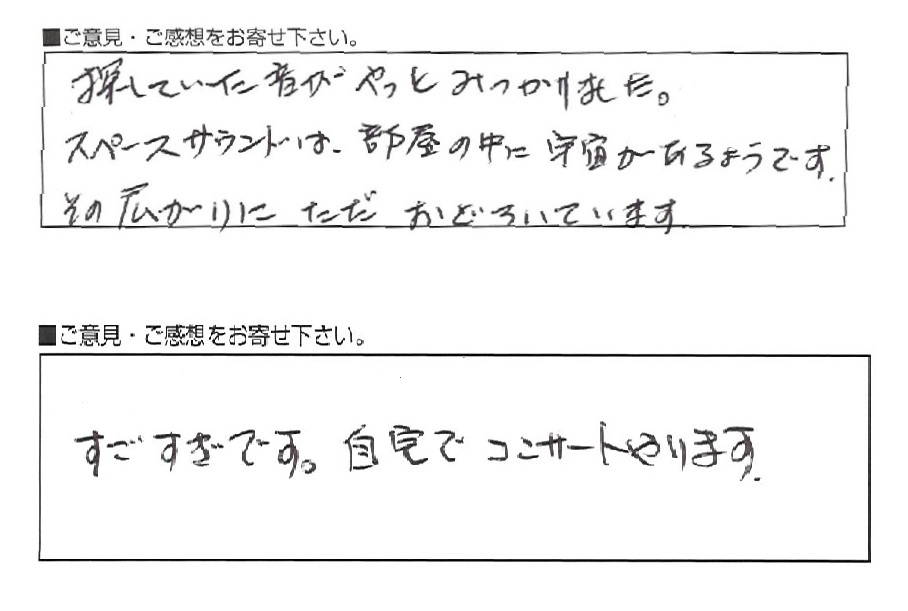 ■ご意見・ご感想をお寄せ下さい。
探していた音がやっとみつかりました。
スペースサウンドは、部屋の中に宇宙があるようです.
その広がりに ただ おどろいています.
■ご意見・ご感想をお寄せ下さい。
すごすぎです。自宅でコンサートやります.